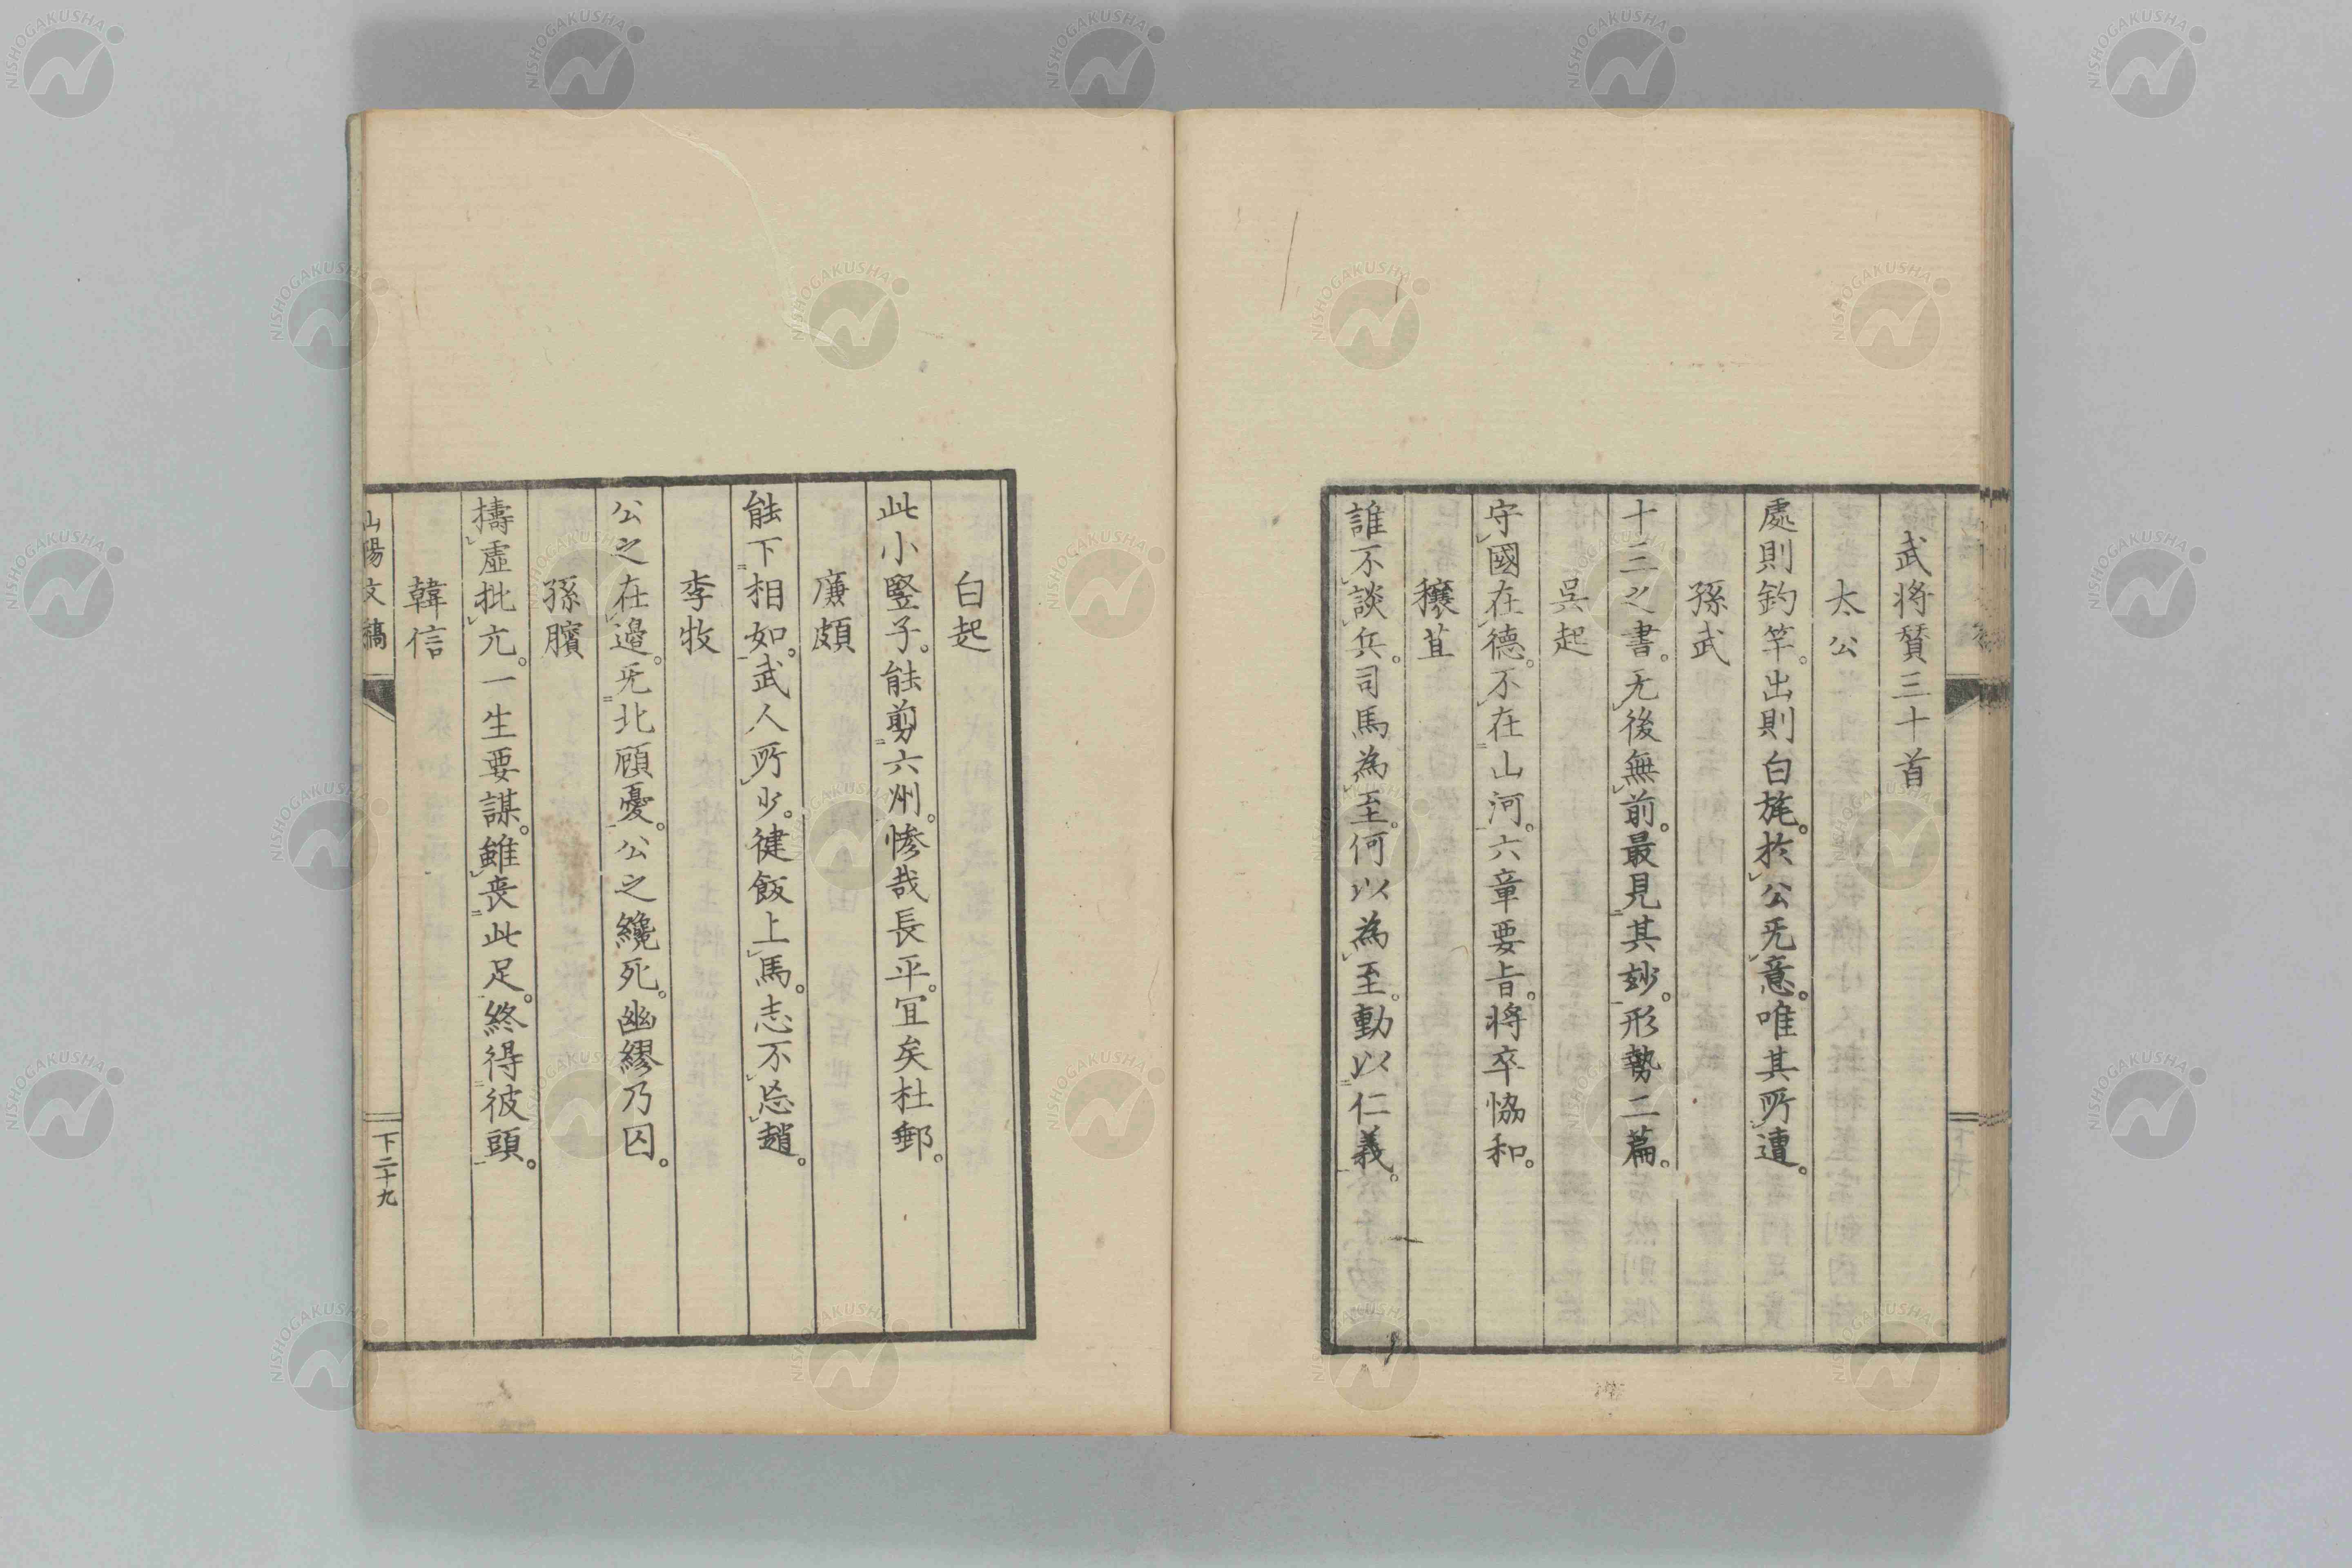 武将賛三十首
太公
處則釣竿。出則白旄。於公旡意。唯其所遭。
孫武
十三之書。无後無前。最見其妙。形勢二篇。
吳起
守國在德。不在山河。六章要旨。将卒恊和。
穰苴
誰不談兵。司馬為至。何以為至。動以仁義。
白起
此小豎子。能剪六州。惨哉長平。冝矣杜郵。
廉頗
能下相如。武人所少。健飯上馬。志不忘趙。
李牧
公之在邉。旡北顧憂。公之纔死。幽繆乃囚。
孫臏
擣虛批亢。一生要謀。雖喪此足。終得彼頭。
韓信
山陽文稿
下二十九
NISHOGAKUSHA